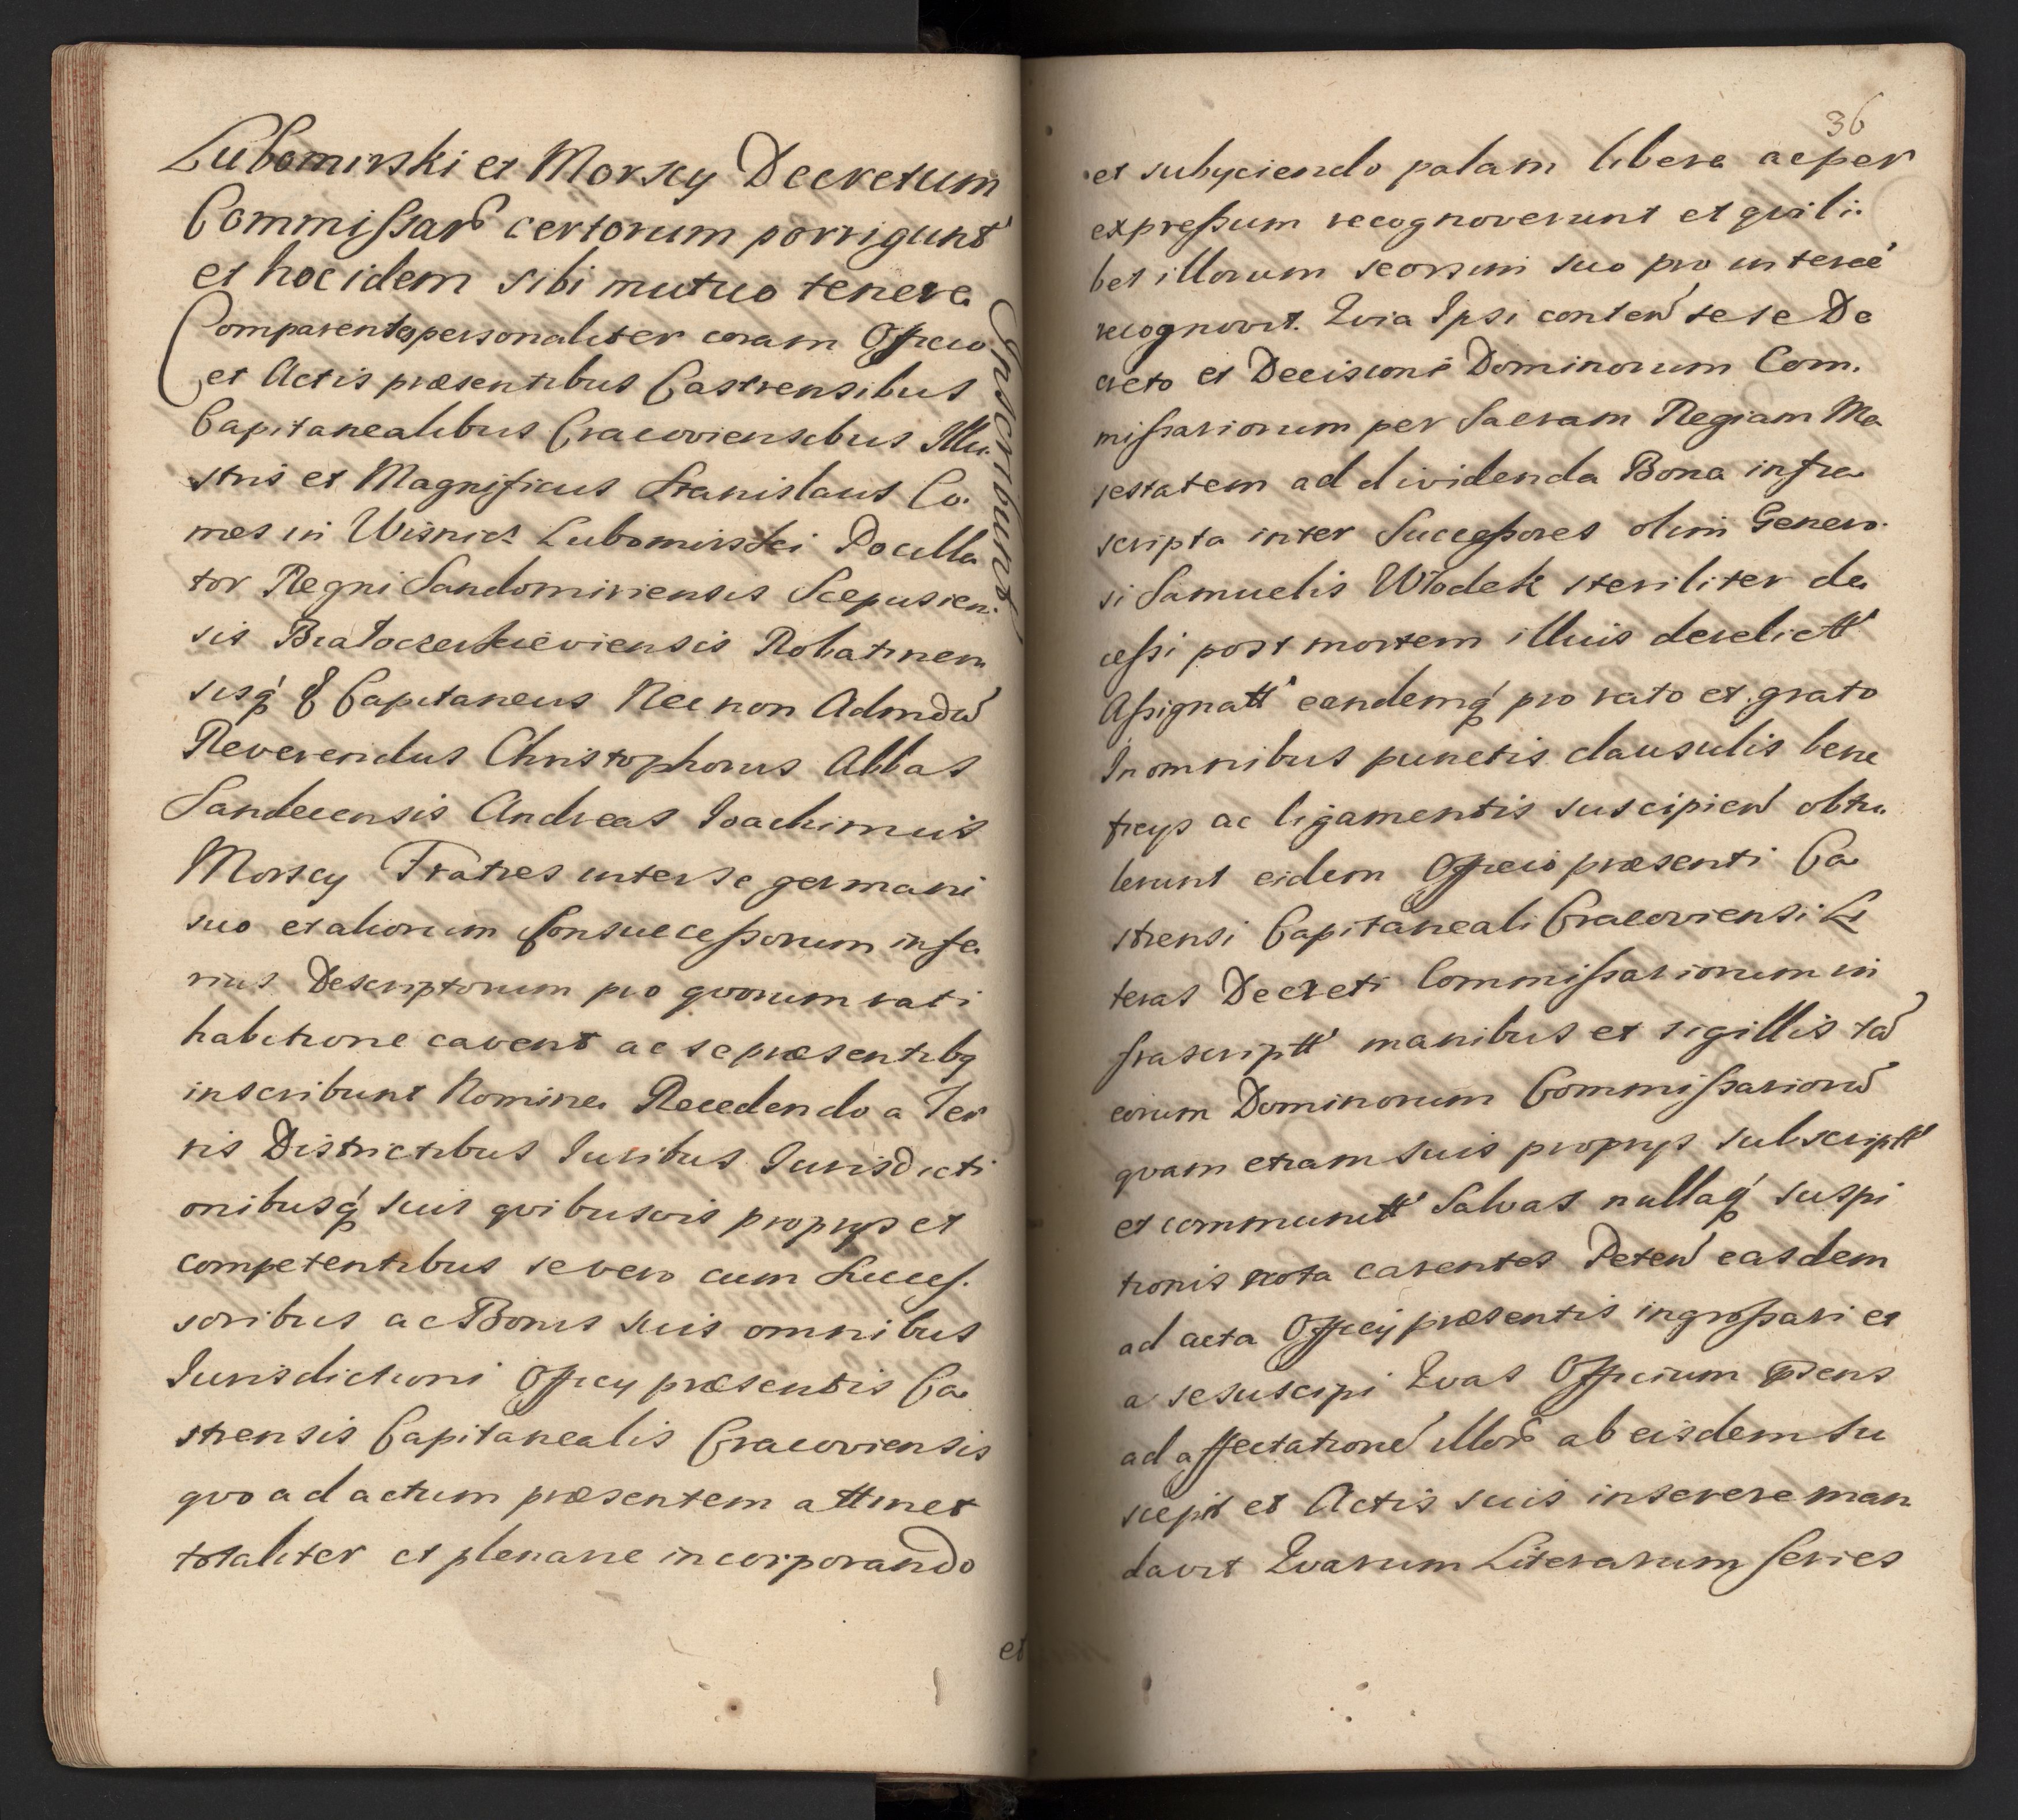 Lubomirski et Morscy Decretum
Commißar certorum porrigunt
et hoc idem sibi mutuo tenere
inscribunt
Comparentes personaliter coram Officio
et Actis præsentibus Castrensibus
Capitanealibus Cracoviensibus Illu-
stris et Magnificus Stanislaus Co-
mes in Wisnicz Lubomirski Pocilla
tor Regni Sandomiriensis Scepusien-
sis Białocerkieviensis Rohatinen
sisq́ & Capitaneus Nec non Admdu
Reverendus Christophorus Abbas
Sandecensis Andreas Joachimus
Morscy Fratres inter se germani
suo et aliorum Consuccessorum infe
rius Descriptorum pro qvorum rati
habitione cavent ac se præsentibq
inscribunt Nomine Recedendo a Ter
ris Districtibus Juribus Jurisdicti
onibusq́ suis qvibusvis proprys et
competentibus se vero cum Succes-
soribus ac Bonis suis omnibus
Jurisdictioni Officy præsentis Ca
strensis Capitanealis Cracoviensis
qvo ad actum præsentem attinet
totaliter et plenarie incorporando
et
36
et subyciendo palam libere ac per
expreßum recognoverunt et qvili-
bet illorum seorsim suo pro interee
recognovit. Qvia Ipsi conten sese De
creto et Decisioni Dominorum Com-
mißariorum per Sacram Regiam Ma
jestatem ad dividenda Bona infra
scripta inter Succeßores olim Genero-
si Samuelis Włodek steriliter de
ceßi post mortem illius derelictt
Aßignatt eandemq́ pro rato et grato
In omnibus punctis clausulis bene
ficys ac ligamentis suscipien obtu
lerunt eidem Officio præsenti Ca
strensi Capitaneali Cracoviensi Li
teras Decreti Commißariorum in
frascriptt manibus et sigillis ta
eorum Dominorum Commißarioru
qvam etiam suis proprys subscriptt
et communitt Salvas nullaq́ suspi
tionis nota carentes Peten easdem
ad acta Officy præsentis ingroßari et
a se suscipi Qvas Officium præns
ad affectatione illor ab eisdem su
scepit et Actis suis inserere man
davit Qvarum Literarum series